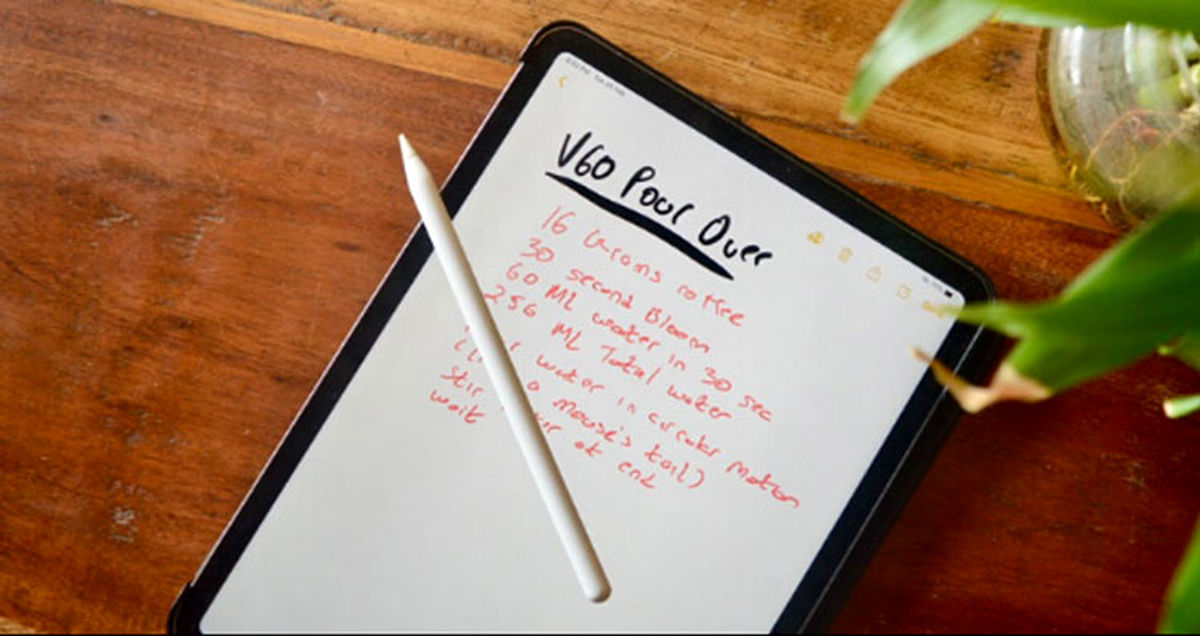 V60 Pour Over
16 Grams coffee
30 second Bloom
60 ML water in 30 sec
256 ML Total water
water in circular Motion
mouse's tail)
Stir at end
wait